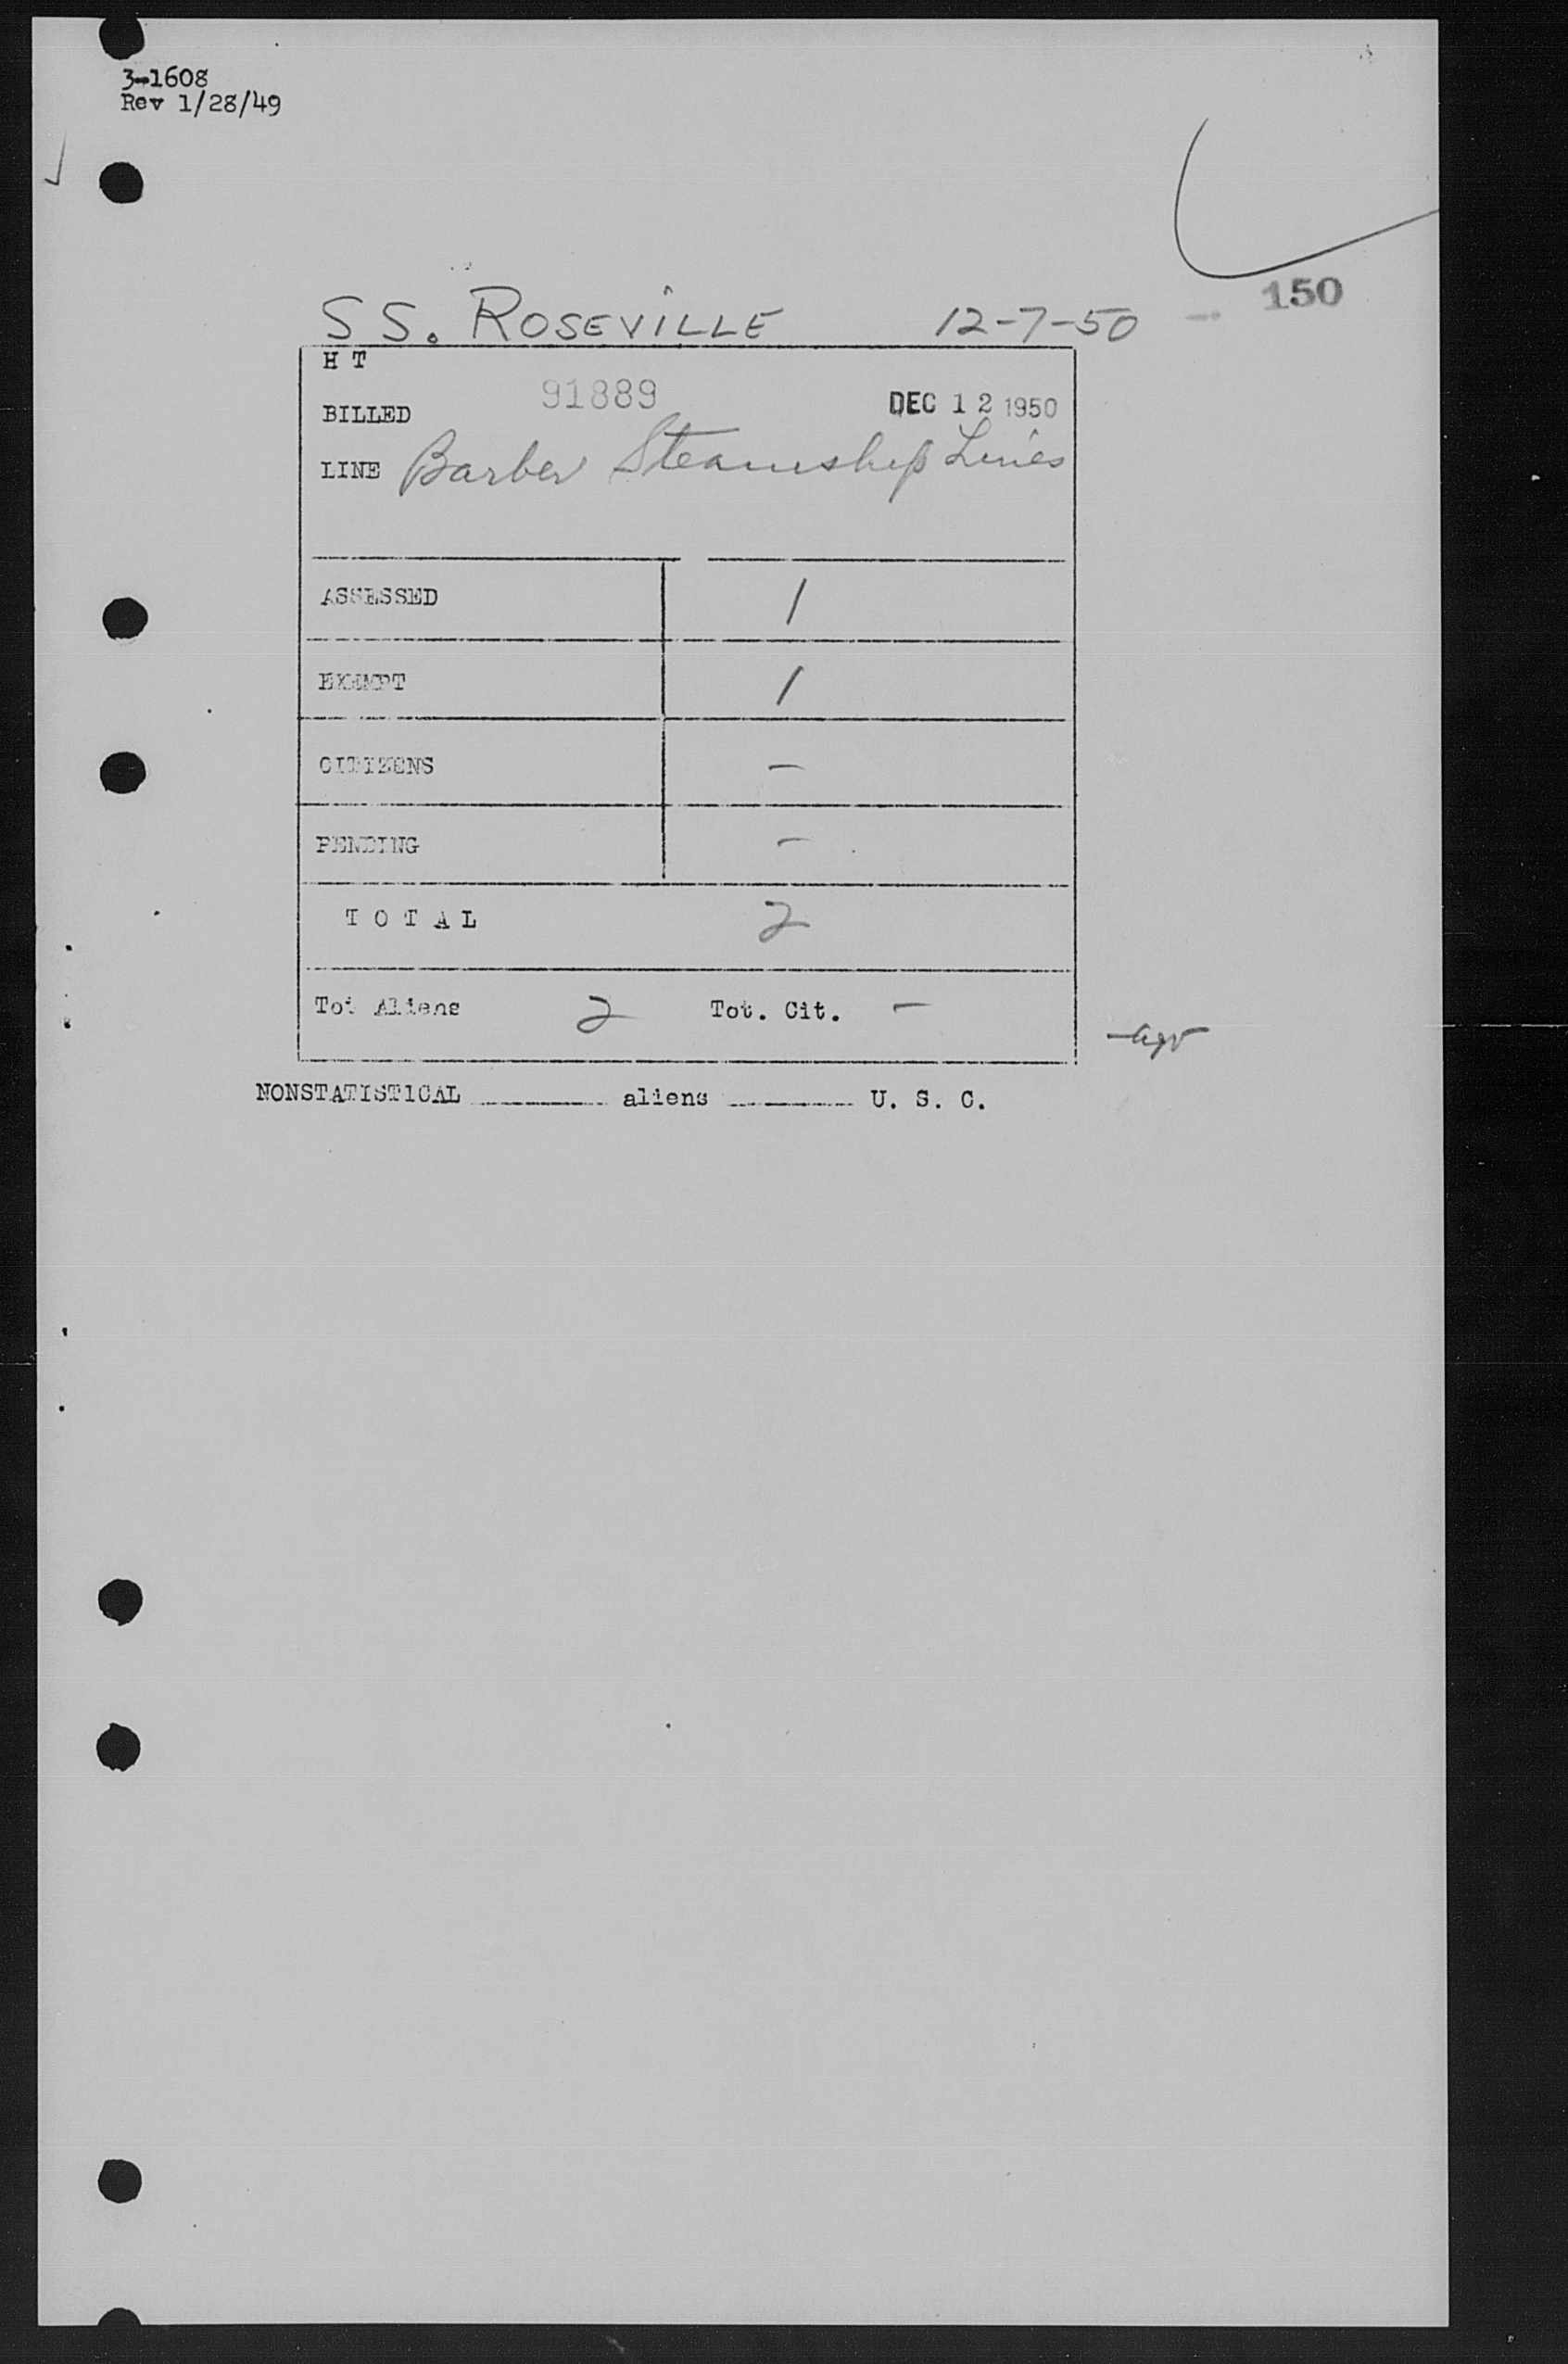 3-1608
Rev 1/28/49
SS. ROSEVILLE 12-7-50 150
H T
BILLED 91889 DEC 12 1950
LINE Barber Steamship Lines
ASSESSED 1
EXEMPT 1
CITIZENS -
PENDING -
TOTAL 2
Tot Aliens 2 Tot. Cit. -
NONSTATISTICAL ________ aliens ________ U. S. C.